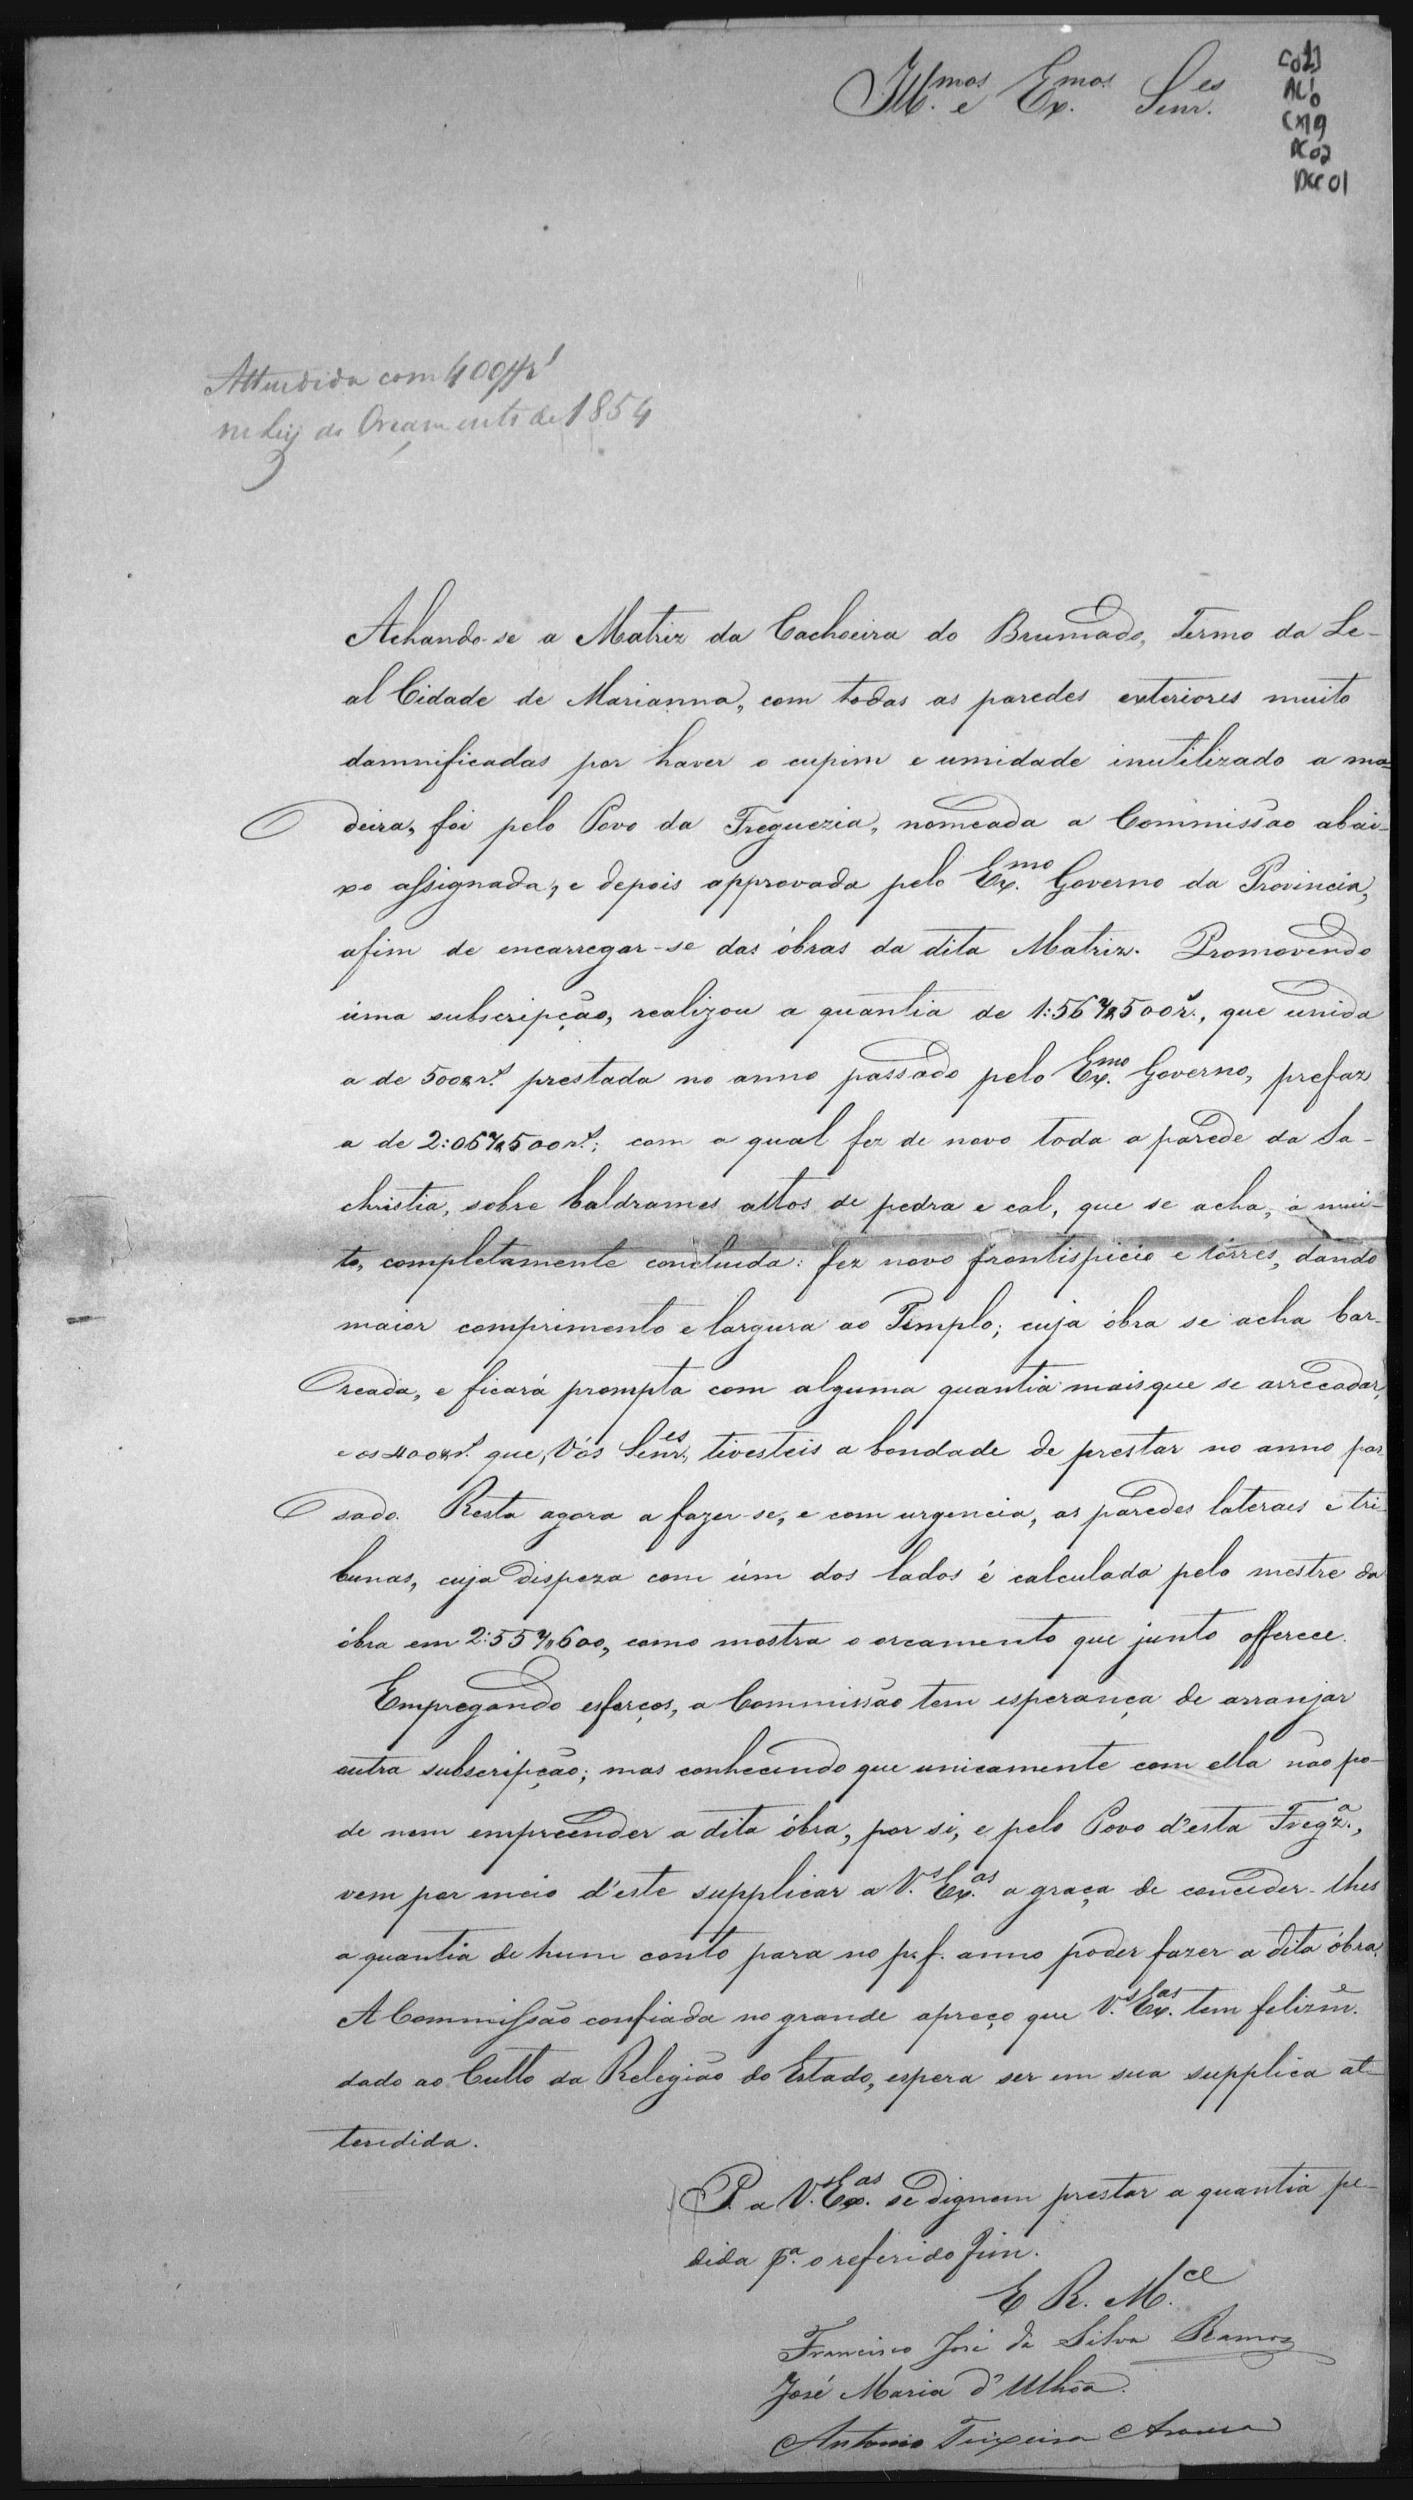 Ill.mos e Ex.mos Senr.es
Co13
AL10
CX19
PC02
Doc01
Attendida com 400$r.s
na Ley do Orçamento de 1854
Achando-se a Matriz da Cachoeira do Brumado, Termo da Le-
al Cidade de Marianna, com todas as paredes exteriores muito
damnificadas por haver o cupim e umidade inutilizado a ma-
deira, foi pelo Povo da Freguezia, nomeada a Commissão abai-
xo assignada, e depois approvada pelo Ex.mo Governo da Provincia,
afim de encarregar-se das óbras da dita Matriz. Promovendo
úma subscripção, realizou a quantia de 1:567$500r.s, que unida
a de 500$r.s prestada no anno passado pelo Ex.mo Governo, prefaz
a de 2:067$500r.s; com a qual fez de novo toda a parede da Sa-
christia, sobre baldrames altos de pedra e cal, que se acha, á mui-
to, completamente concluida: fez novo frontispicio e tórres, dando
maior comprimento e largura ao Templo; cuja óbra se acha bar-
reada, e ficará prompta com alguma quantia mais que se arrecadar,
e os 400$r.s que, Vós Senr.es, tivesteis a bondade de prestar no anno pas
sado. Resta agora a fazer-se, e com urgencia, as paredes lateraes e tri-
bunas, cuja dispeza com úm dos lados é calculada pelo mestre da
óbra em 2:557$600, como mostra o orcamento que junto offerece.
Empregando esforços, a Commissão tem esperança de arranjar
outra subscripção; mas conhecendo que unicamente com ella não po-
de nem empreender a dita óbra, por si, e pelo Povo d'esta Fregz.a,
vem por meio d'este supplicar a V.s Ex.as a graça de conceder-lhes
a quantia de hum conto para no p.f. anno poder fazer a dita óbra.
A Commissão confiada no grande apreço que V.s Ex.as tem felizm.e
dado ao Culto da Relegião do Estado, espera ser em sua supplica at-
tendida.
P. a V. Ex.as se dignem prestar a quantia pe-
dida p.a o referido fim.
E R. M.ce
Francisco José da Silva Ramos
José Maria d'Ulhôa.
Antonio Teixeira